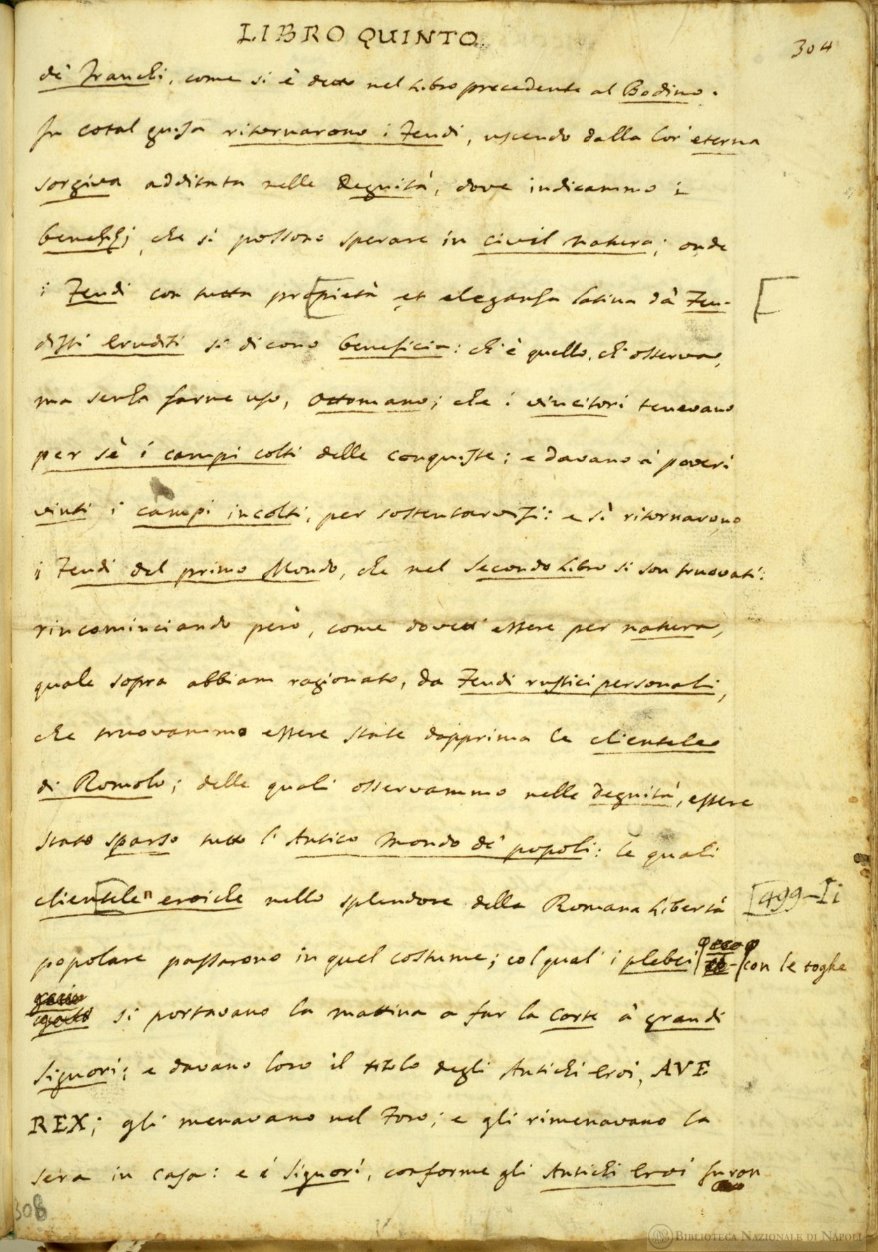 LIBRO QUINTO
304
de' Franchi, come si è detto nel Libro precedente al Bodino.
In cotal guisa ritornarono i Feudi, uscendo dalla lor' eterna
sorgiva additata nelle Degnità, dove indicammo i
benefizj, che si possono sperare in civil natura; onde
i Feudi con tutta propietà et eleganza latina da' Feu-
disti eruditi si dicono beneficia: ch'è quello, ch'osserva,
ma senza farne uso, Ottomano; che i vincitori tenevano
per sè i campi colti delle conquiste; e davano a' poveri
vinti i campi incolti, per sostentarvisi: e sì ritornarono
i Feudi del primo Mondo, che nel Secondo Libro si son truovati:
rincominciando però, come dovett' essere per natura,
quale sopra abbiam ragionato, da Feudi rustici personali,
che truovammo essere state dapprima le clientele
di Romolo; delle quali osservammo nelle Degnità, essere
stato sparso tutto l'Antico Mondo de' popoli: le quali
clientele eroiche nello splendore della Romana Libertà
[499-Ii
popolare passarono in quel costume; col qual' i plebei con le toghe
si portavano la mattina a far la corte a' grandi
Signori; e davano loro il titolo degli Antichi Eroi, AVE
REX; gli menavano nel Foro; e gli rimenavano la
sera in casa: e i Signori, conforme gli Antichi Eroi furon
308
BIBLIOTECA NAZIONALE DI NAPOLI